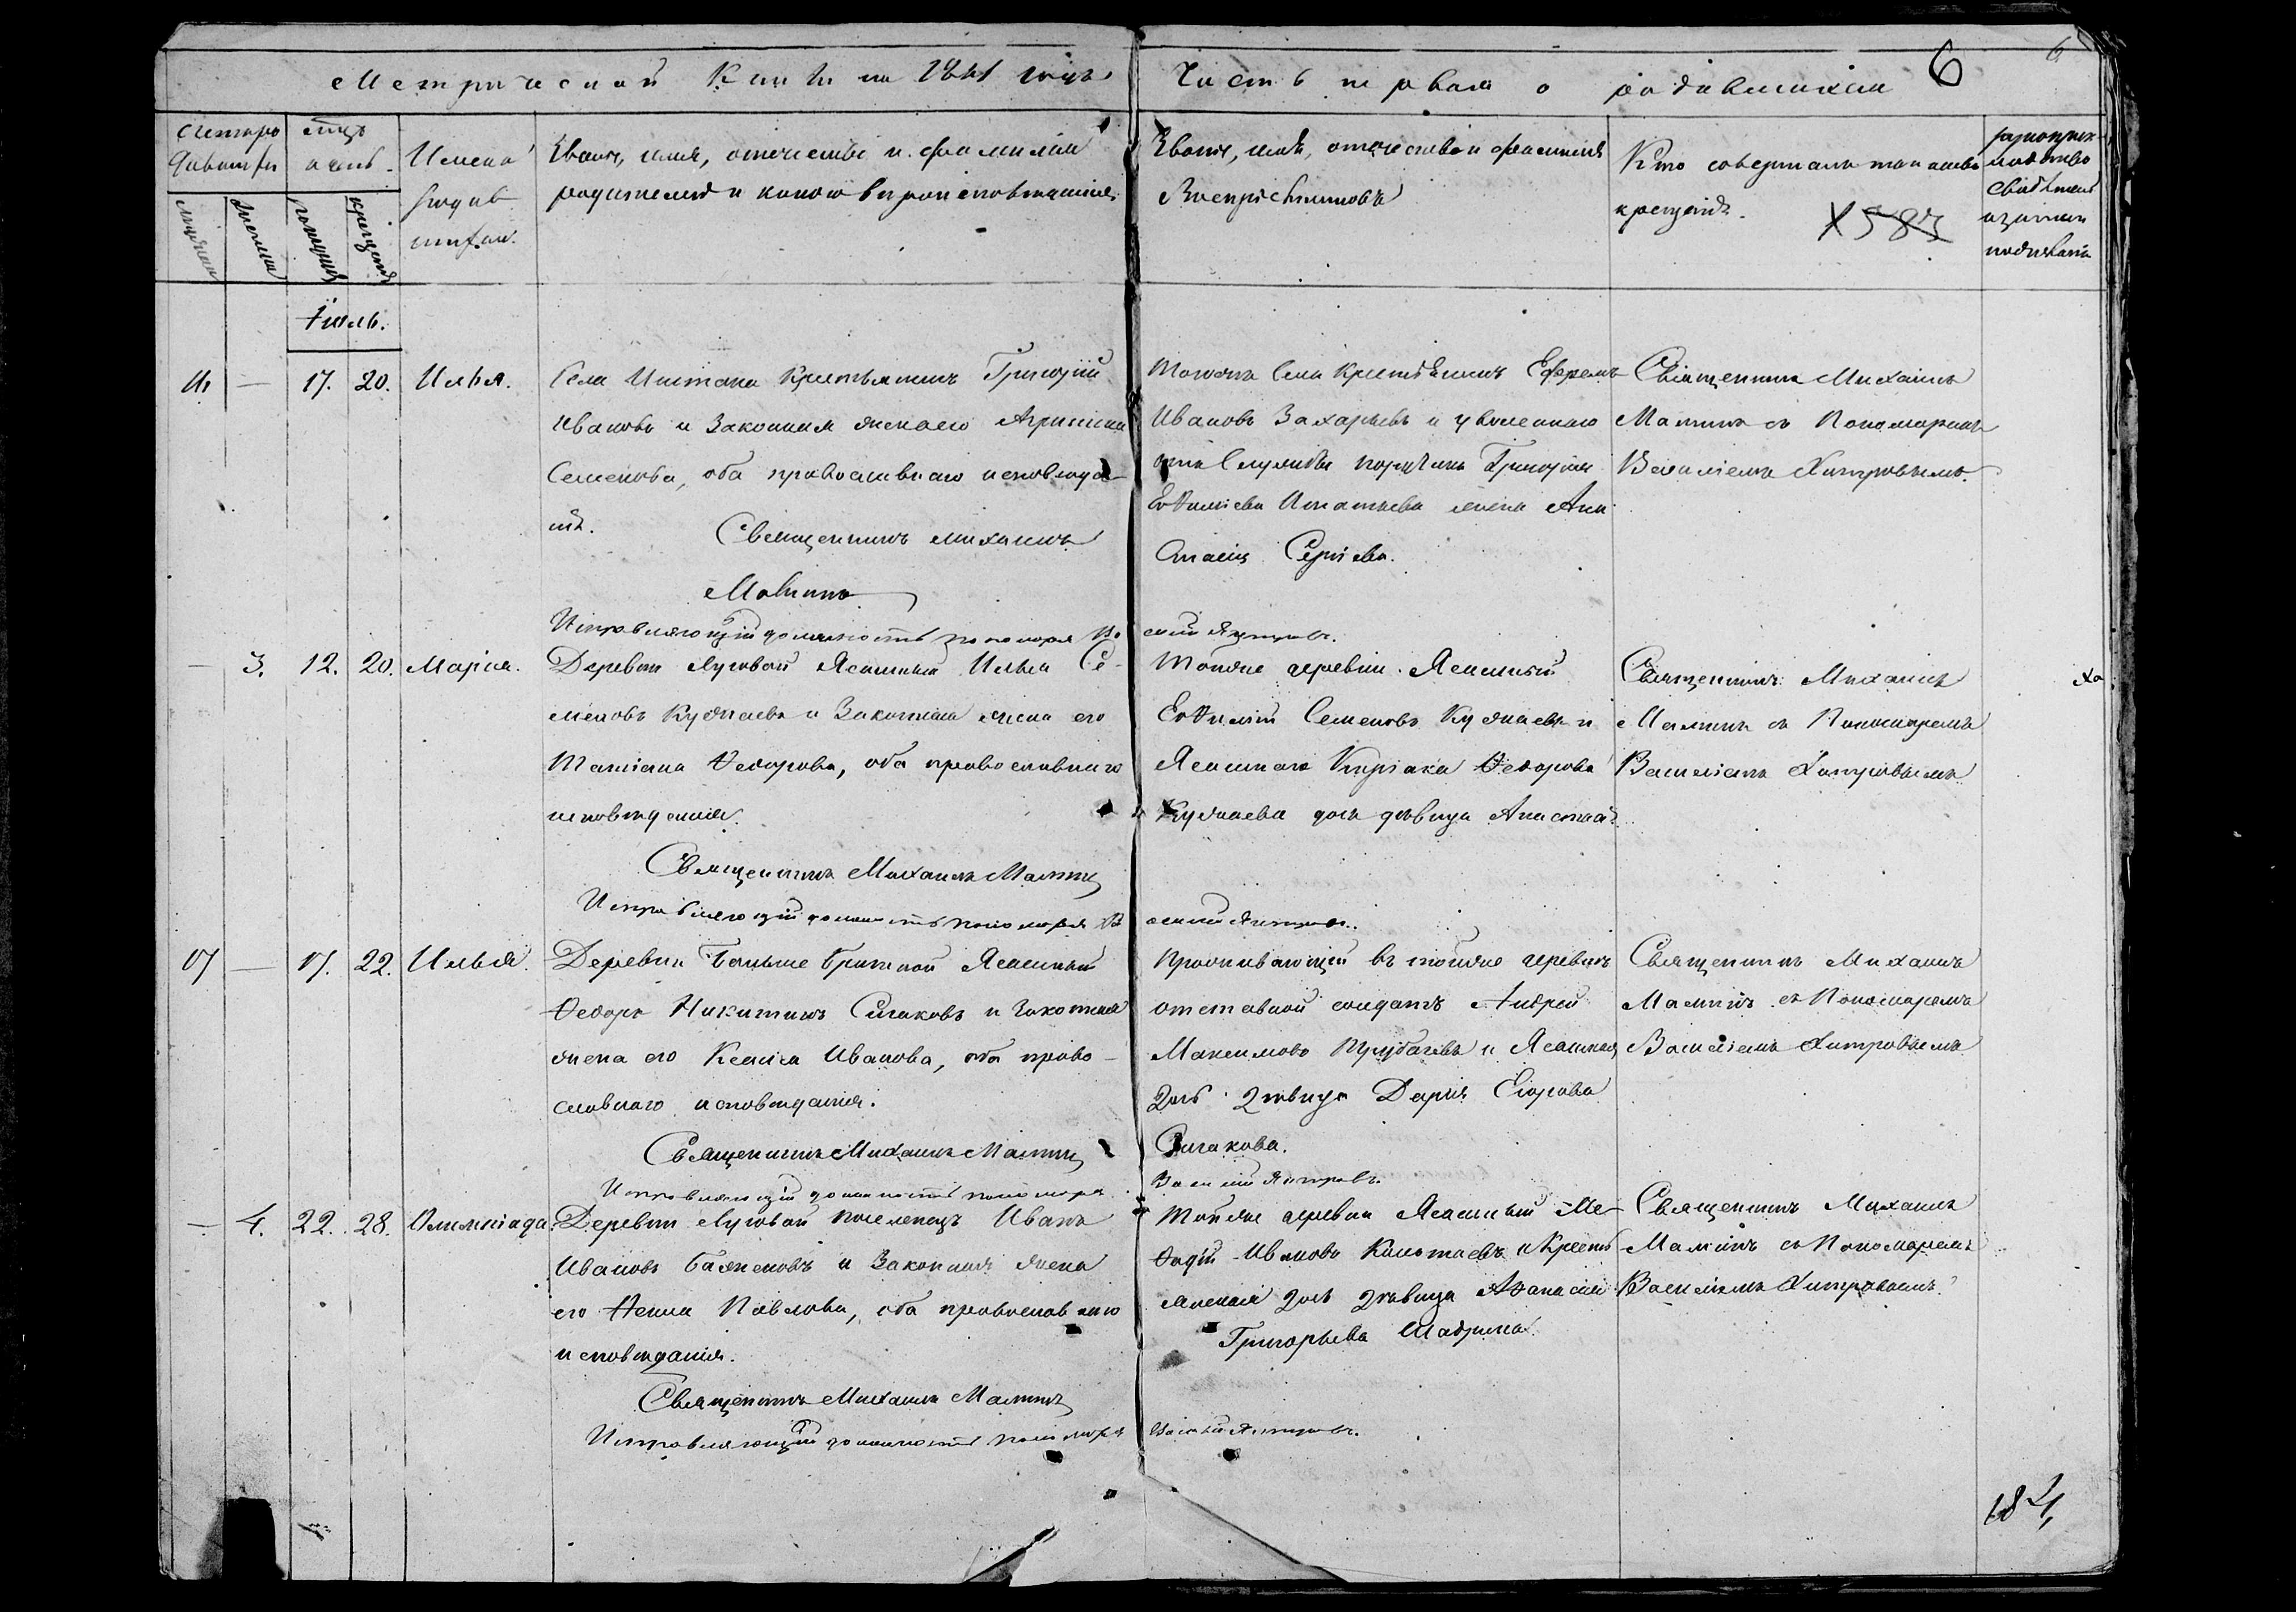 Метрической Книги на 1841 годъ Часть первая о родившихся 6 6
Счетъ ро
дившихся
мѣсяцъ
и день
Имена
родив
шихся.
Званіе, имя, отечество и фамилія
родителей и какого вѣроисповѣданія.
Званіе, имя, отечество и фамилія
Воспріемниковъ
Кто совершалъ таинство
крещенія.
Х583
рукоприк-
ладство
свидѣтелей
записи
по желанію
рожденія
крещенія
Іюль.
— 17. 20. Илья.
Села Иштана Крестьянинъ Григорій
Ивановъ и Законная жена его Агрипина
Семенова, оба православнаго исповѣда-
нія.
Священникъ Михаилъ
Малинъ
Исправляющій должность пономаря Ва
силій Хитровъ.
Тогоже Села Крестьянинъ Ефремъ
Ивановъ Захарьевъ и уволеннаго
отъ Службы Григорія
Евѳиміева Игнатьева жена Ана
стасія Сергіева.
Священникъ Михаилъ
Малинъ съ Пономаремъ
Василіемъ Хитровымъ.
— 3. 12. 20. Марія.
Деревни Луговой Ясашный Илья Се-
меновъ Куднаевъ и Законная жена его
Татіана Ѳедорова, оба православнаго
исповѣданія.
Священникъ Михаилъ Малинъ
Исправляющій должность пономаря Ва
силій Хитровъ.
Тойже деревни Ясашный
Евѳимій Семеновъ Куднаевъ и
Ясашнаго Киріака Ѳедорова
Куднаева дочь дѣвица Анастасія.
Священникъ Михаилъ
Малинъ съ Пономаремъ
Василіемъ Хитровымъ
— 17. 22. Илья.
Деревни Ясашный
Ѳедоръ Никитинъ Сигаковъ и Законная
жена его Ксенія Иванова, оба право-
славнаго исповѣданія.
Священникъ Михаилъ Малинъ
Исправляющій должность пономаря
Василій Хитровъ.
Проживающій въ тойже деревнѣ
отставной солдатъ Андрей
Максимовъ и Ясашная
дочь дѣвица Дарья Егорова
Сигакова.
Священникъ Михаилъ
Малинъ съ Пономаремъ
Василіемъ Хитровымъ
— 4. 22. 28. Олимпіада.
Деревни Луговой поселенецъ Иванъ
Ивановъ Баженовъ и Законная жена
его Ѳекла Павлова, оба православнаго
исповѣданія.
Священникъ Михаилъ Малинъ
Исправляющій должность пономаря
Василій Хитровъ.
Тойже деревни Ясашный Ме-
ѳодій Ивановъ и Кресть
янская дочь дѣвица Аѳанасія
Григорьева Шадрина.
Священникъ Михаилъ
Малинъ съ Пономаремъ
Василіемъ Хитровымъ.